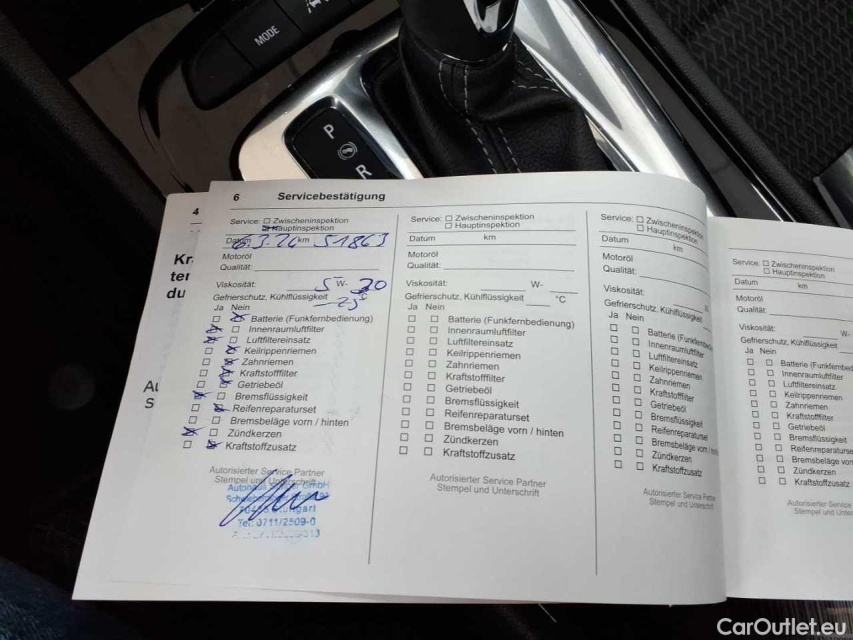 MODE
P
R
4
Kr
ter
du
S
6 Servicebestätigung
Service: Zwischeninspektion
Hauptinspektion
Datum 6.3.24 km 51863
Motoröl
Qualität:
Viskosität: 5 W- 30
Gefrierschutz, Kühlflüssigkeit -25 °C
Ja Nein
Batterie (Funkfernbedienung)
Innenraumluftfilter
Luftfiltereinsatz
Keilrippenriemen
Zahnriemen
Kraftstofffilter
Getriebeöl
Bremsflüssigkeit
Reifenreparaturset
Bremsbeläge vorn / hinten
Zündkerzen
Kraftstoffzusatz
Autorisierter Service Partner
Stempel und Unterschrift
GmbH
Tel. 0711/2509-0
Service: Zwischeninspektion
Hauptinspektion
Datum km
Motoröl
Qualität:
Viskosität: W-
Gefrierschutz, Kühlflüssigkeit °C
Ja Nein
Batterie (Funkfernbedienung)
Innenraumluftfilter
Luftfiltereinsatz
Keilrippenriemen
Zahnriemen
Kraftstofffilter
Getriebeöl
Bremsflüssigkeit
Reifenreparaturset
Bremsbeläge vorn / hinten
Zündkerzen
Kraftstoffzusatz
Autorisierter Service Partner
Stempel und Unterschrift
Service: Zwischeninspektion
Hauptinspektion
Datum km
Motoröl
Qualität:
Viskosität:
Gefrierschutz, Kühlflüssigkeit
Ja Nein
Batterie (Funkfernb
Innenraumluftfilter
Luftfiltereinsatz
Keilrippenriemen
Zahnriemen
Kraftstofffilter
Getriebeöl
Bremsflüssigkeit
Reifenreparaturse
Bremsbeläge vorn /
Zündkerzen
Kraftstoffzusatz
Autorisierter Service Partn
Stempel und Unterschrift
Service: Zwischeninspektion
Hauptinspektion
Datum km
Motoröl
Qualität:
Viskosität: W-
Gefrierschutz, Kühlflüssigkeit
Ja Nein
Batterie (Funkfernbed
Innenraumluftfilter
Luftfiltereinsatz
Keilrippenriemen
Zahnriemen
Kraftstofffilter
Getriebeöl
Bremsflüssigkeit
Reifenreparaturse
Bremsbeläge vorn
Zündkerzen
Kraftstoffzusatz
Autorisierter Service
Stempel und Unter
CarOutlet.eu